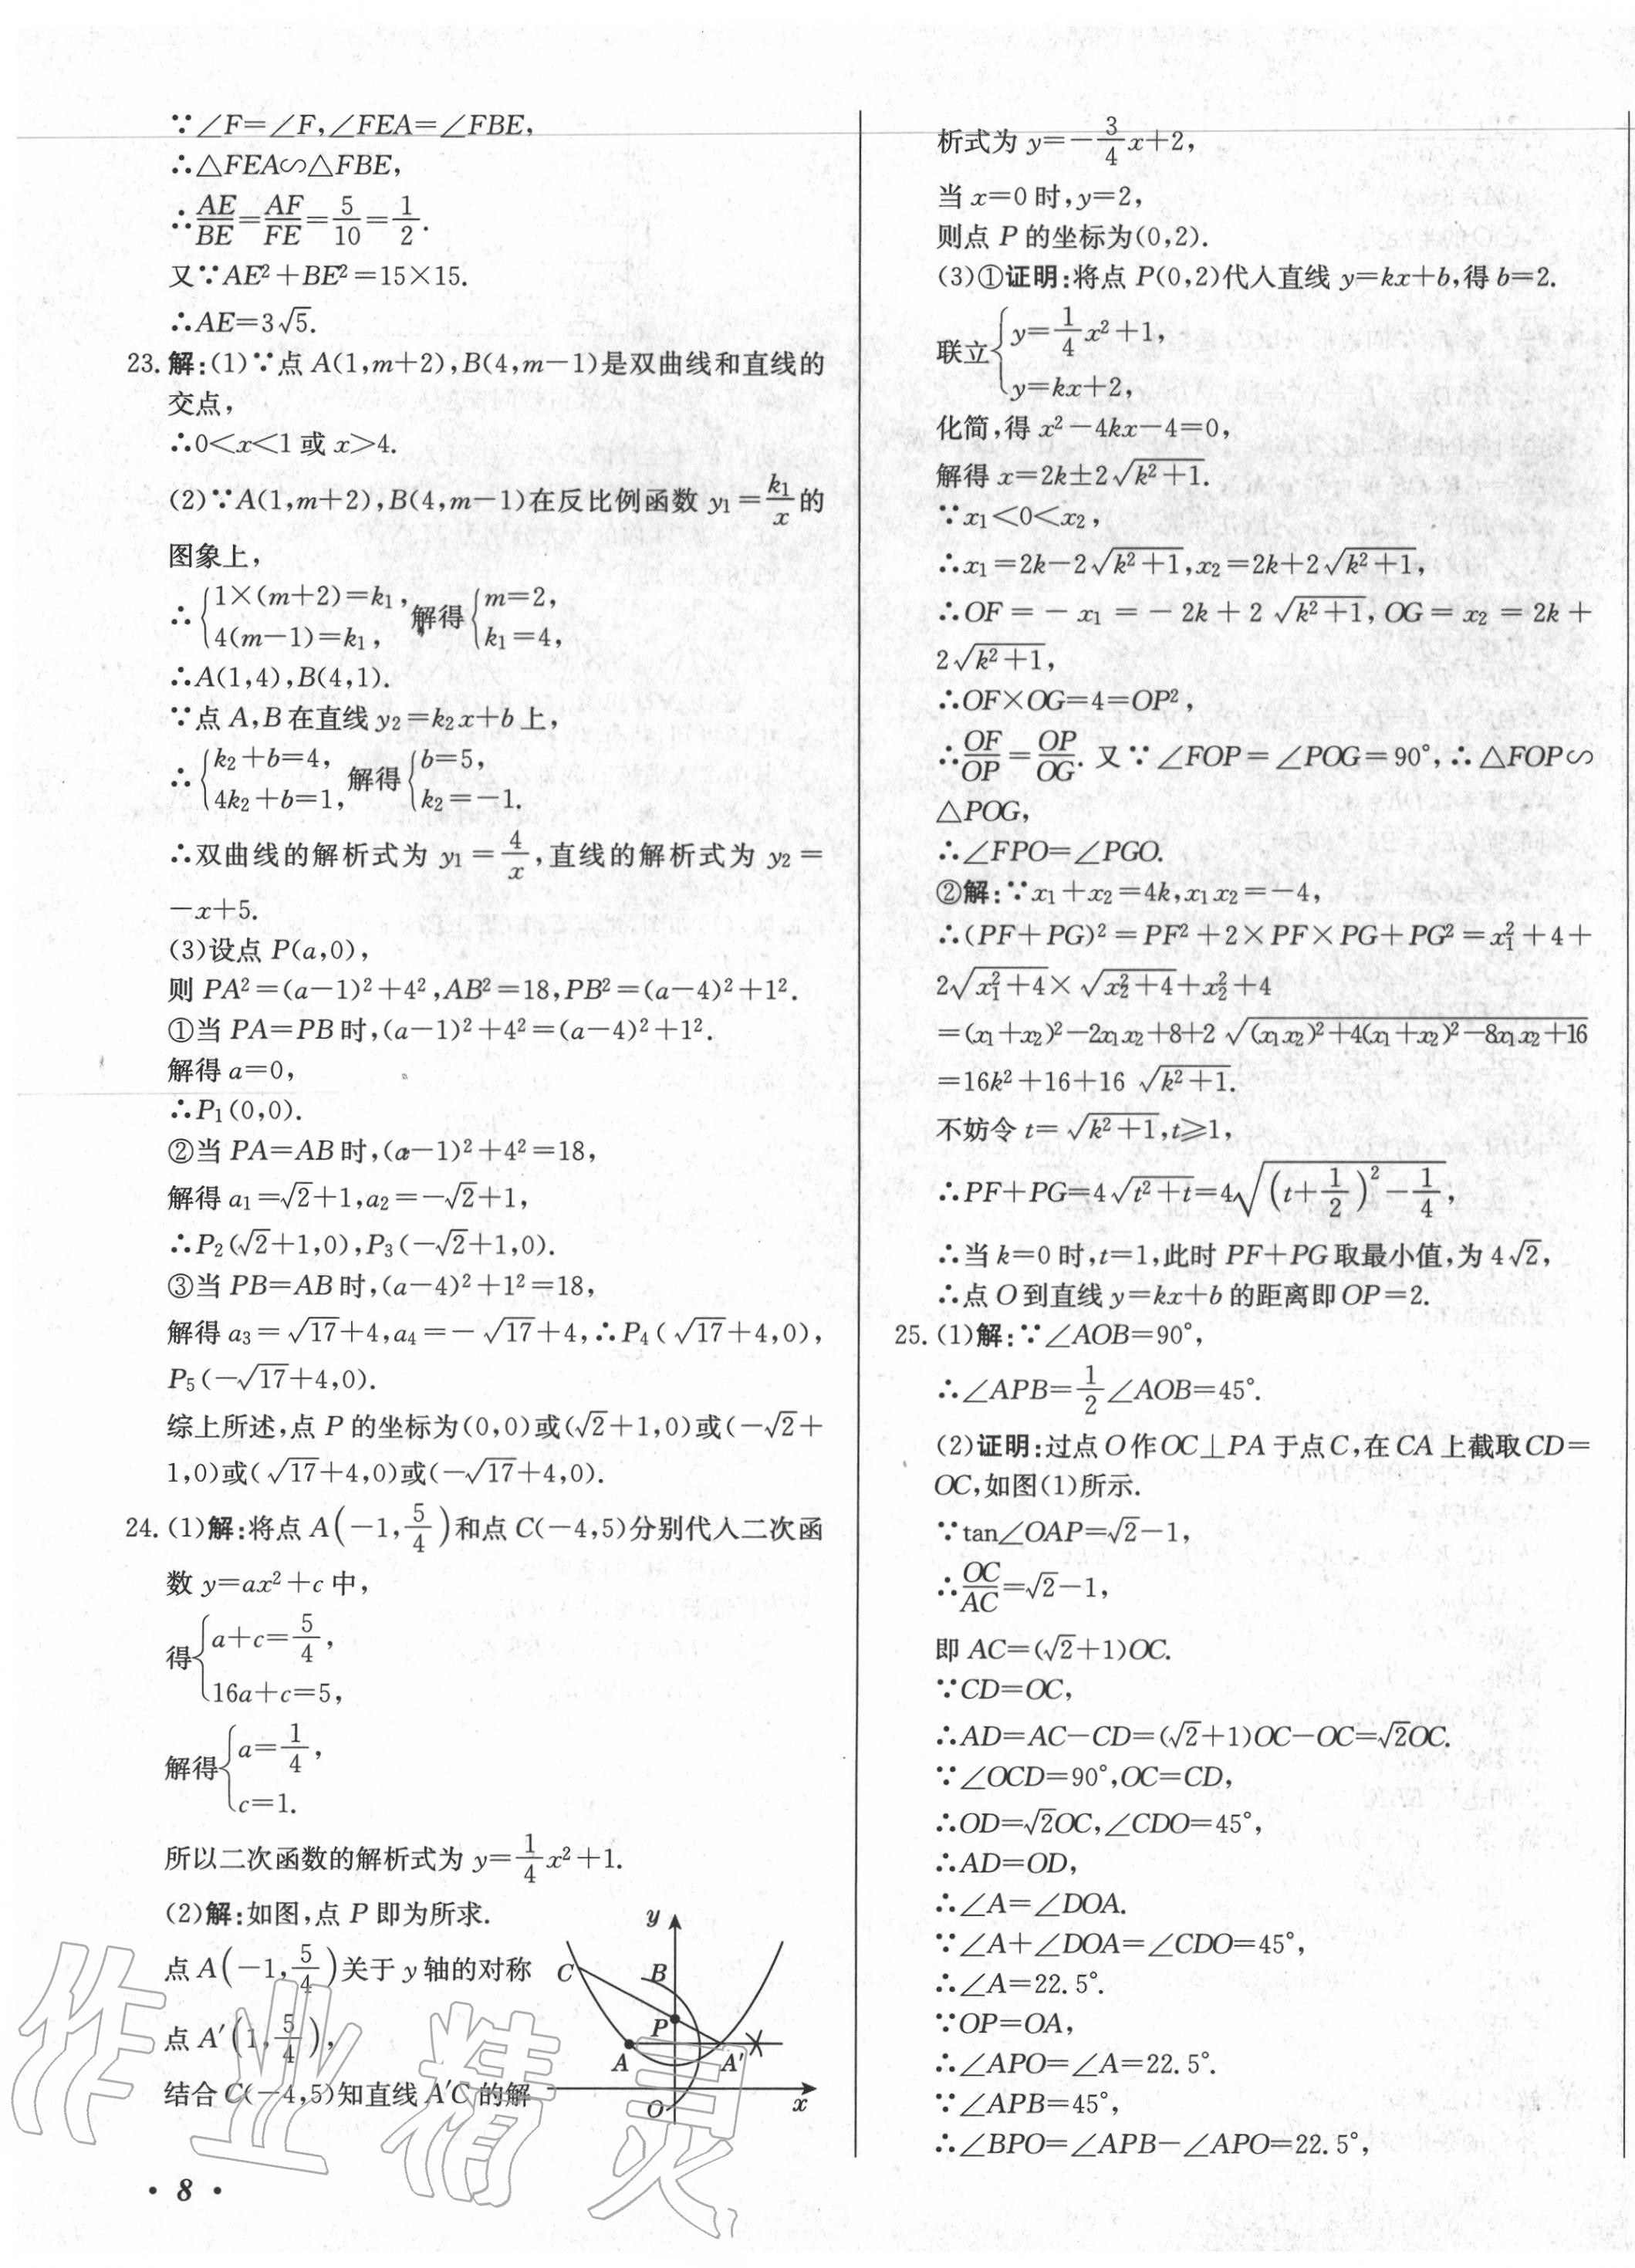 ∵∠F=∠F,∠FEA=∠FBE,
∴△FEA∽△FBE,
∴AE/BE=AF/FE=5/10=1/2.
又∵AE²+BE²=15×15.
∴AE=3√5.
23.解:(1)∵点A(1,m+2),B(4,m-1)是双曲线和直线的
交点,
∴0<x<1或x>4.
(2)∵A(1,m+2),B(4,m-1)在反比例函数 y₁=k₁/x 的
图象上,
∴{1×(m+2)=k₁, 4(m-1)=k₁, 解得{m=2, k₁=4,
∴A(1,4),B(4,1).
∵点A,B在直线y₂=k₂x+b上,
∴{k₂+b=4, 4k₂+b=1, 解得{b=5, k₂=-1.
∴双曲线的解析式为 y₁=4/x,直线的解析式为 y₂=
-x+5.
(3)设点P(a,0),
则PA²=(a-1)²+4²,AB²=18,PB²=(a-4)²+1².
①当PA=PB时,(a-1)²+4²=(a-4)²+1².
解得a=0,
∴P₁(0,0).
②当PA=AB时,(a-1)²+4²=18,
解得a₁=√2+1,a₂=-√2+1,
∴P₂(√2+1,0),P₃(-√2+1,0).
③当PB=AB时,(a-4)²+1²=18,
解得a₃=√17+4,a₄=-√17+4,∴P₄(√17+4,0),
P₅(-√17+4,0).
综上所述,点P的坐标为(0,0)或(√2+1,0)或(-√2+
1,0)或(√17+4,0)或(-√17+4,0).
24.(1)解:将点A(-1,5/4)和点C(-4,5)分别代入二次函
数y=ax²+c中,
得{a+c=5/4, 16a+c=5,
解得{a=1/4, c=1.
所以二次函数的解析式为y=1/4x²+1.
(2)解:如图,点P即为所求.
点A(-1,5/4)关于y轴的对称
点A′(1,5/4),
结合C(-4,5)知直线A′C的解
y
C
B
P
A
A′
O
x
· 8 ·
析式为y=-3/4x+2,
当x=0时,y=2,
则点P的坐标为(0,2).
(3)①证明:将点P(0,2)代入直线y=kx+b,得b=2.
联立{y=1/4x²+1, y=kx+2,
化简,得x²-4kx-4=0,
解得x=2k±2√(k²+1).
∵x₁<0<x₂,
∴x₁=2k-2√(k²+1),x₂=2k+2√(k²+1),
∴OF=-x₁=-2k+2√(k²+1),OG=x₂=2k+
2√(k²+1),
∴OF×OG=4=OP²,
∴OF/OP=OP/OG.又∵∠FOP=∠POG=90°,∴△FOP∽
△POG,
∴∠FPO=∠PGO.
②解:∵x₁+x₂=4k,x₁x₂=-4,
∴(PF+PG)²=PF²+2×PF×PG+PG²=x₁²+4+
2√(x₁²+4)×√(x₂²+4)+x₂²+4
=(x₁+x₂)²-2x₁x₂+8+2√((x₁x₂)²+4(x₁+x₂)²-8x₁x₂+16)
=16k²+16+16√(k²+1).
不妨令t=√(k²+1),t≥1,
∴PF+PG=4√(t²+t)=4√((t+1/2)²-1/4),
∴当k=0时,t=1,此时PF+PG取最小值,为4√2,
∴点O到直线y=kx+b的距离即OP=2.
25.(1)解:∵∠AOB=90°,
∴∠APB=1/2∠AOB=45°.
(2)证明:过点O作OC⊥PA于点C,在CA上截取CD=
OC,如图(1)所示.
∵tan∠OAP=√2-1,
∴OC/AC=√2-1,
即AC=(√2+1)OC.
∵CD=OC,
∴AD=AC-CD=(√2+1)OC-OC=√2OC.
∵∠OCD=90°,OC=CD,
∴OD=√2OC,∠CDO=45°,
∴AD=OD,
∴∠A=∠DOA.
∵∠A+∠DOA=∠CDO=45°,
∴∠A=22.5°.
∵OP=OA,
∴∠APO=∠A=22.5°.
∵∠APB=45°,
∴∠BPO=∠APB-∠APO=22.5°,
作业精灵